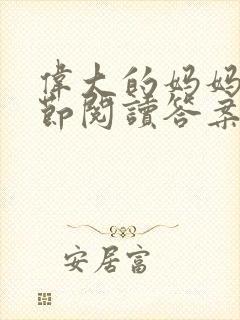 偉大的妈妈
節閱讀答案
安居富